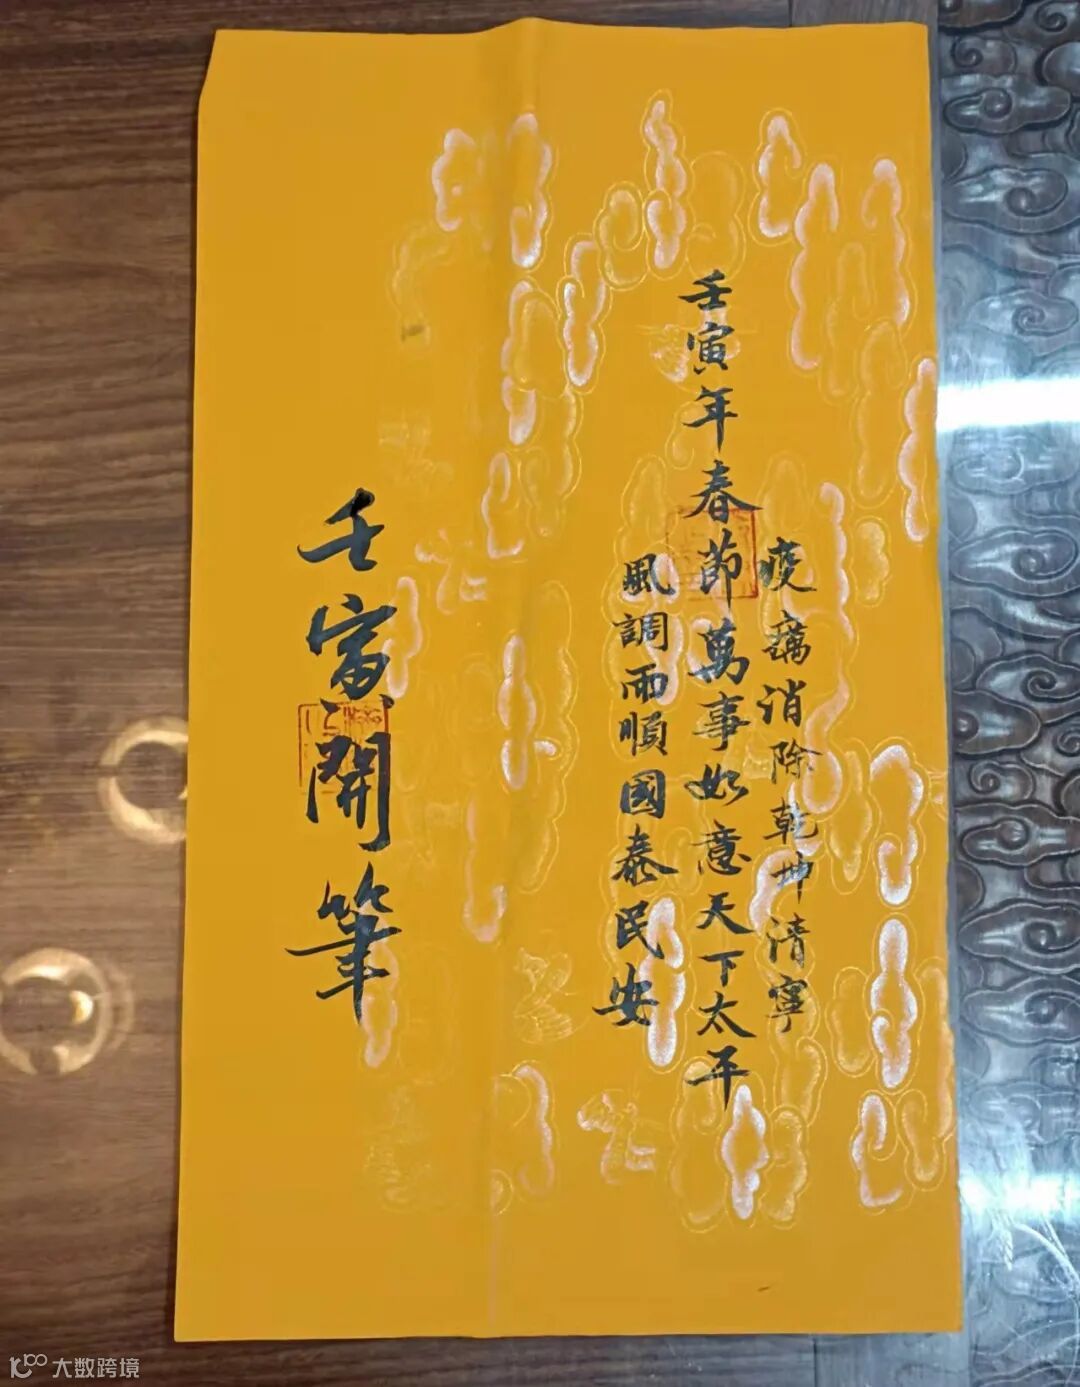 疫癘消除乾坤清寧
壬寅年春節萬事如意天下太平
風調雨順國泰民安
壬寅開筆
大数跨境